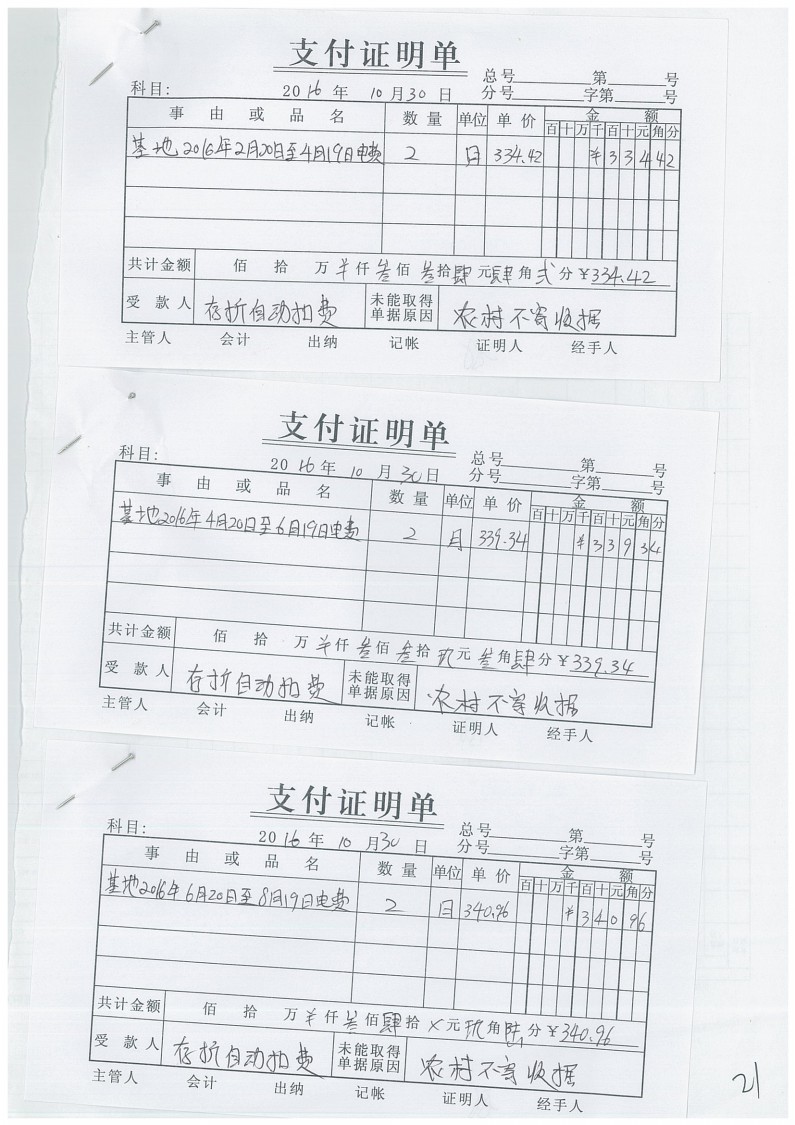 支付证明单
总号 第 号
科目: 2016年 10月30日 分号 字第 号
事由或品名 数量 单位 单价 金额
百十万千百十元角分
基地2016年2月20日至4月19日电费 2 月 334.42 ¥33442
共计金额 佰 拾 万¥仟叁佰叁拾肆元肆角贰分¥334.42
受款人 存折自动扣费 未能取得单据原因 农村不寄收据
主管人 会计 出纳 记帐 证明人 经手人
支付证明单
总号 第 号
科目: 2016年 10月30日 分号 字第 号
事由或品名 数量 单位 单价 金额
百十万千百十元角分
基地2016年4月20日至6月19日电费 2 月 339.34 ¥33934
共计金额 佰 拾 万¥仟叁佰叁拾玖元叁角肆分¥339.34
受款人 存折自动扣费 未能取得单据原因 农村不寄收据
主管人 会计 出纳 记帐 证明人 经手人
支付证明单
总号 第 号
科目: 2016年 10月30日 分号 字第 号
事由或品名 数量 单位 单价 金额
百十万千百十元角分
基地2016年6月20日至8月19日电费 2 月 340.96 ¥34096
共计金额 佰 拾 万¥仟叁佰肆拾×元玖角陆分¥340.96
受款人 存折自动扣费 未能取得单据原因 农村不寄收据
主管人 会计 出纳 记帐 证明人 经手人
21